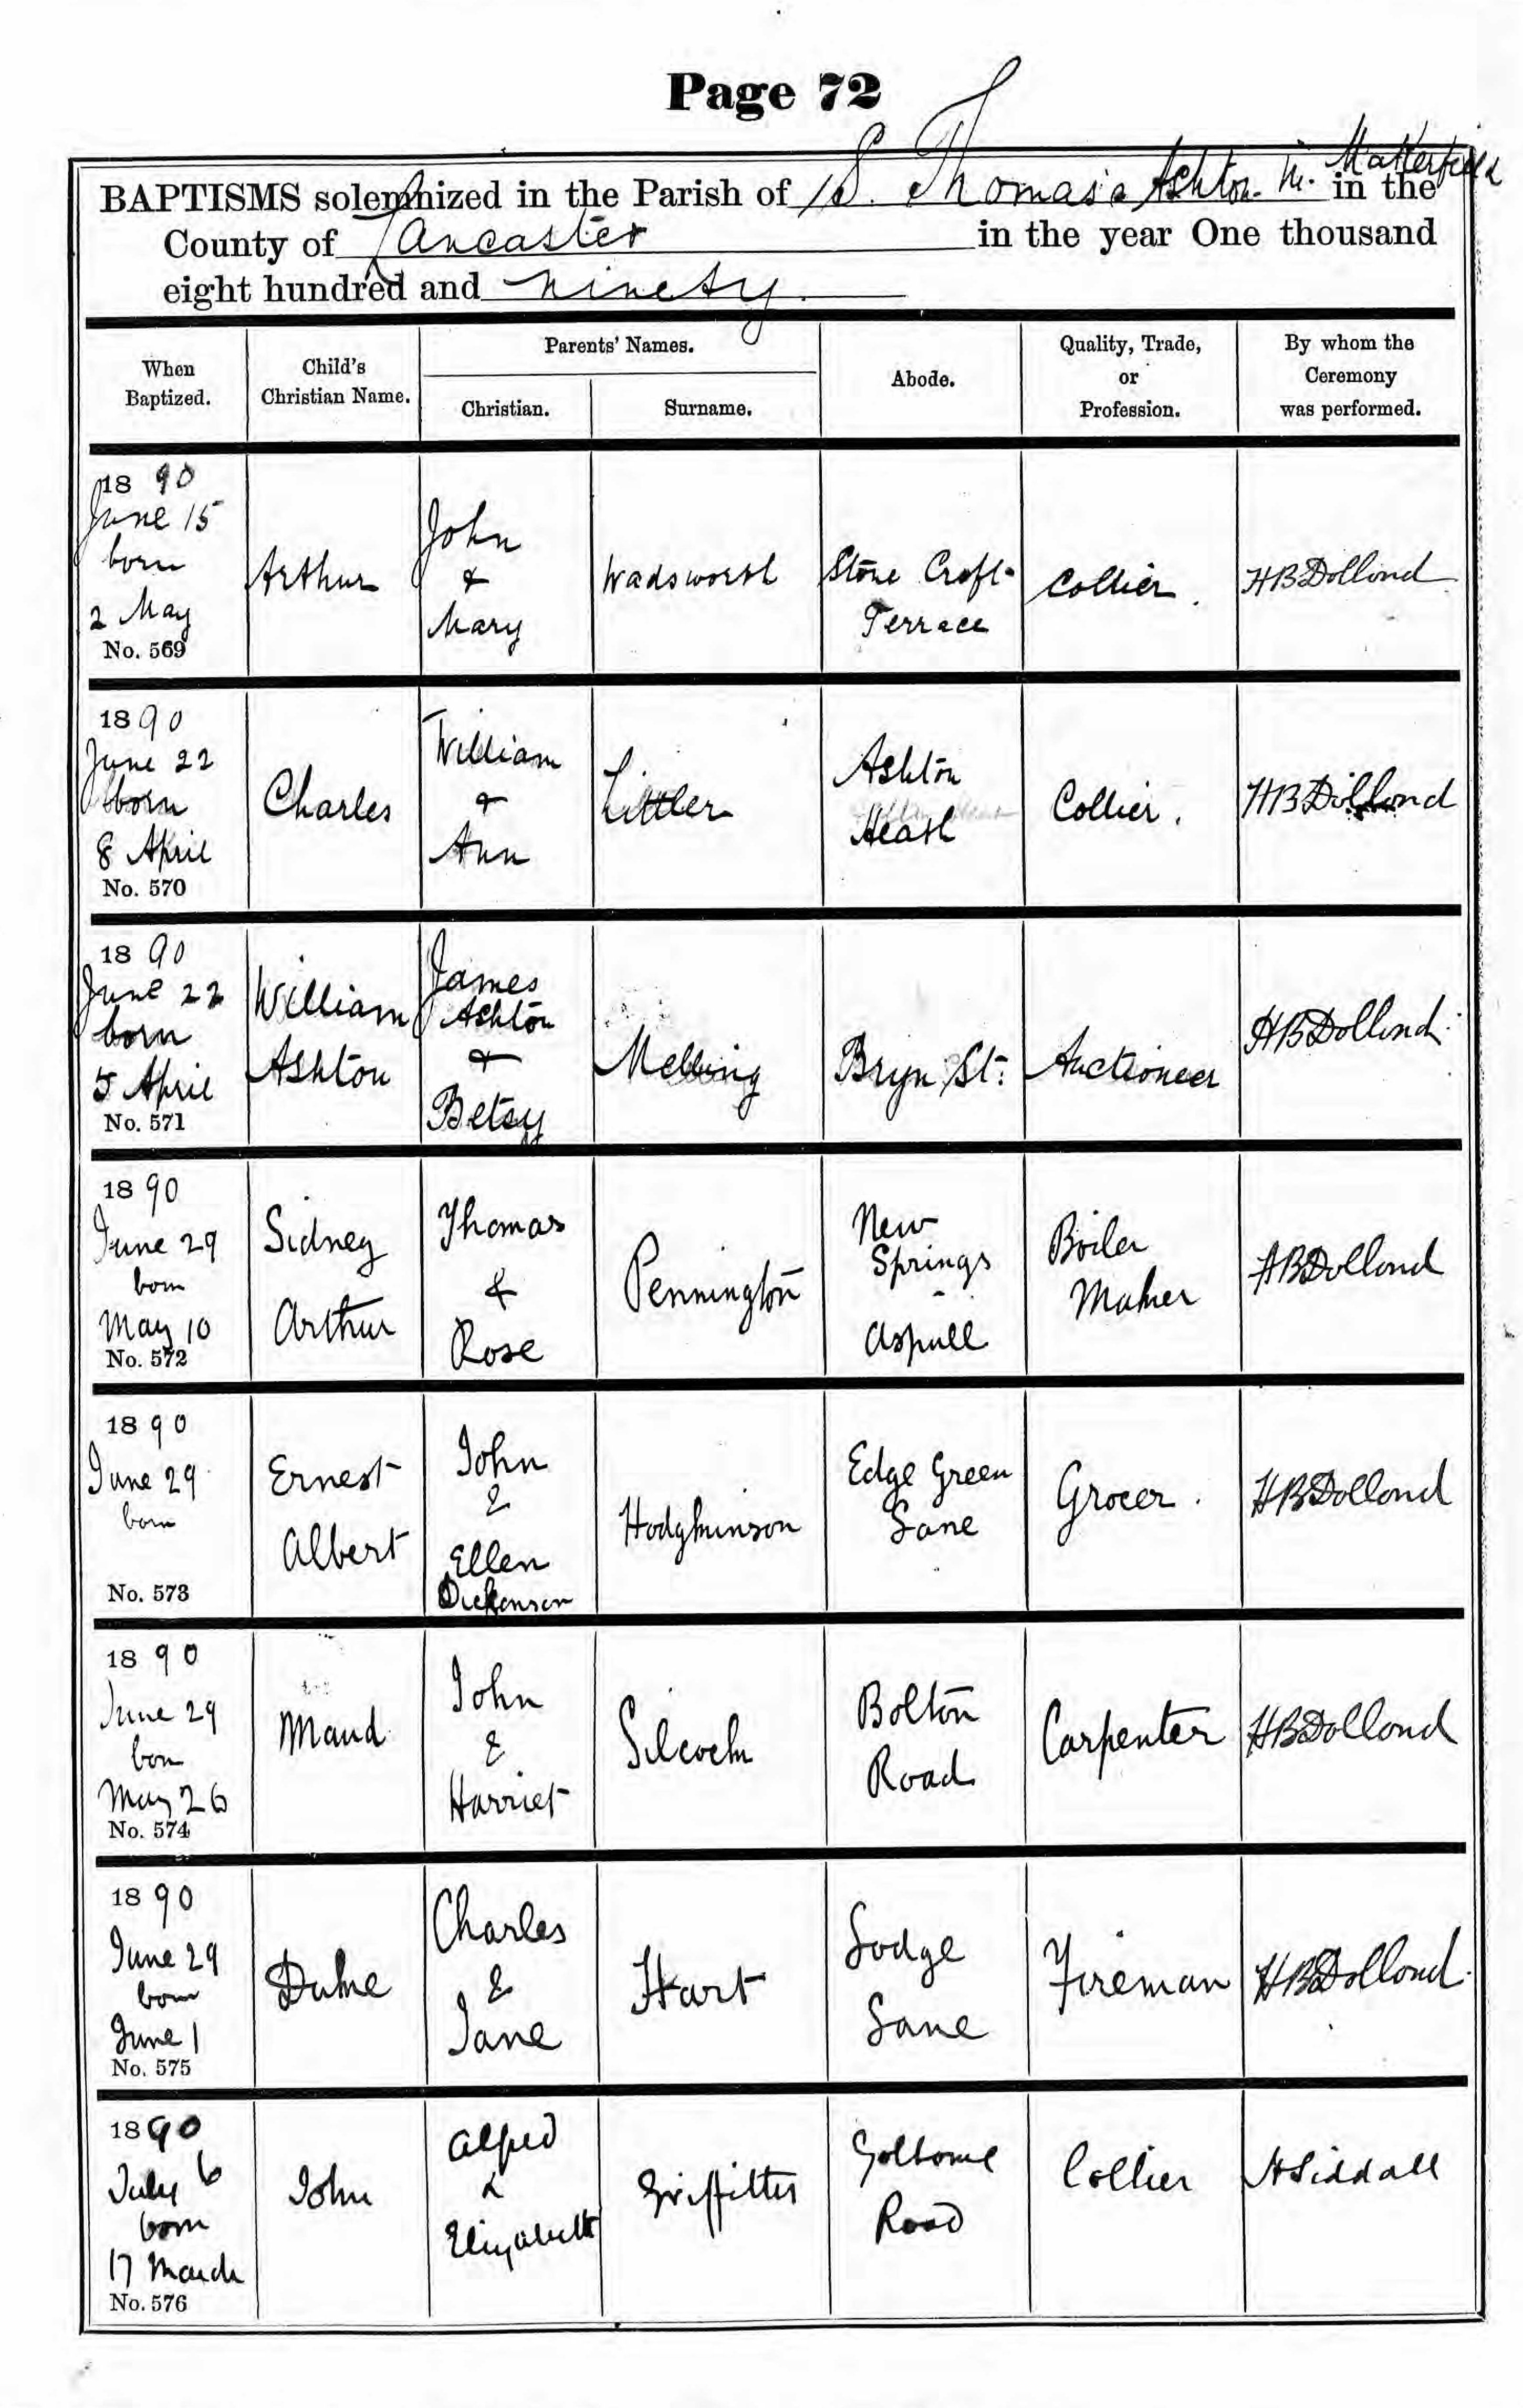 Page 72
BAPTISMS solemnized in the Parish of S. Thomas's Ashton in Makerfield in the
County of Lancaster in the year One thousand
eight hundred and ninety.
When Baptized.
Child's Christian Name.
Parents' Names.
Christian.
Surname.
Abode.
Quality, Trade, or Profession.
By whom the Ceremony was performed.
1890
June 15
born
2 May
No. 569
Arthur
John
&
Mary
Wadsworth
Stone Croft
Terrace
Collier.
HB Dollond
1890
June 22
born
8 April
No. 570
Charles
William
&
Ann
Littler
Ashton
Heath
Collier.
HB Dollond
1890
June 22
born
5 April
No. 571
William
Ashton
James
Ashton
&
Betsy
Melling
Bryn St:
Auctioneer
HB Dollond
1890
June 29
born
May 10
No. 572
Sidney
Arthur
Thomas
&
Rose
Pennington
New
Springs
-
Aspull
Boiler
Maker
HB Dollond
1890
June 29
born
No. 573
Ernest
Albert
John
&
Ellen
Dickenson
Hodgkinson
Edge Green
Lane
Grocer.
HB Dollond
1890
June 29
born
May 26
No. 574
Maud
John
&
Harriet
Silcock
Bolton
Road
Carpenter
HB Dollond
1890
June 29
born
June 1
No. 575
Duke
Charles
&
Jane
Hart
Lodge
Lane
Fireman
HB Dollond
1890
July 6
born
17 March
No. 576
John
Alfred
&
Elizabeth
Griffiths
Golborne
Road
Collier
H Siddall